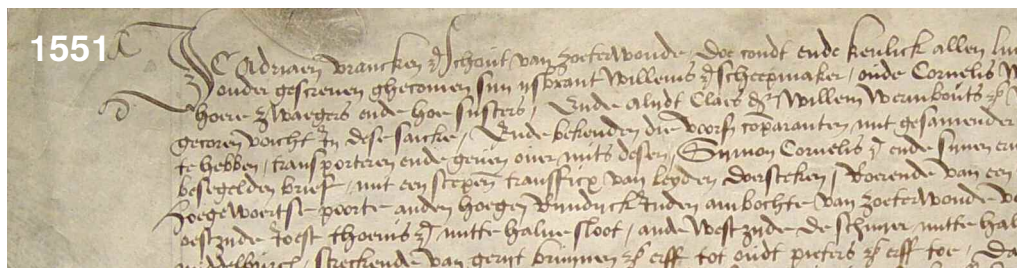 1551
IC Adriaen vrancken z Schout van zoeterwoude doe condt ende kenlick allen lu
onder gescreuen ghecomen sijn ijsbrant willems z scheepmaker ende Cornelis W
hoere zwaegers ende hoer susters Ende alydt Claes dr willem weranbouts z
gecoren voicht In dese saicke Ende bekenden die voirs comparanten mit gesamender
te hebben transporteren ende geuen ouer mits desen Symon Cornelis z ende sijnen er
besegelden brief mit een scepen transfixs van leyden doersteken Roerende van een
hoege woertse poorte anden hoegen Rijndyck Inden ambochte van zoeterwoude
oest zijde Joest thoenis z mitte halue sloot ande west zijde de schuer mitte hal
middelburch streckende van gerijt brunnen z erff tot oudt pieters z erff toe